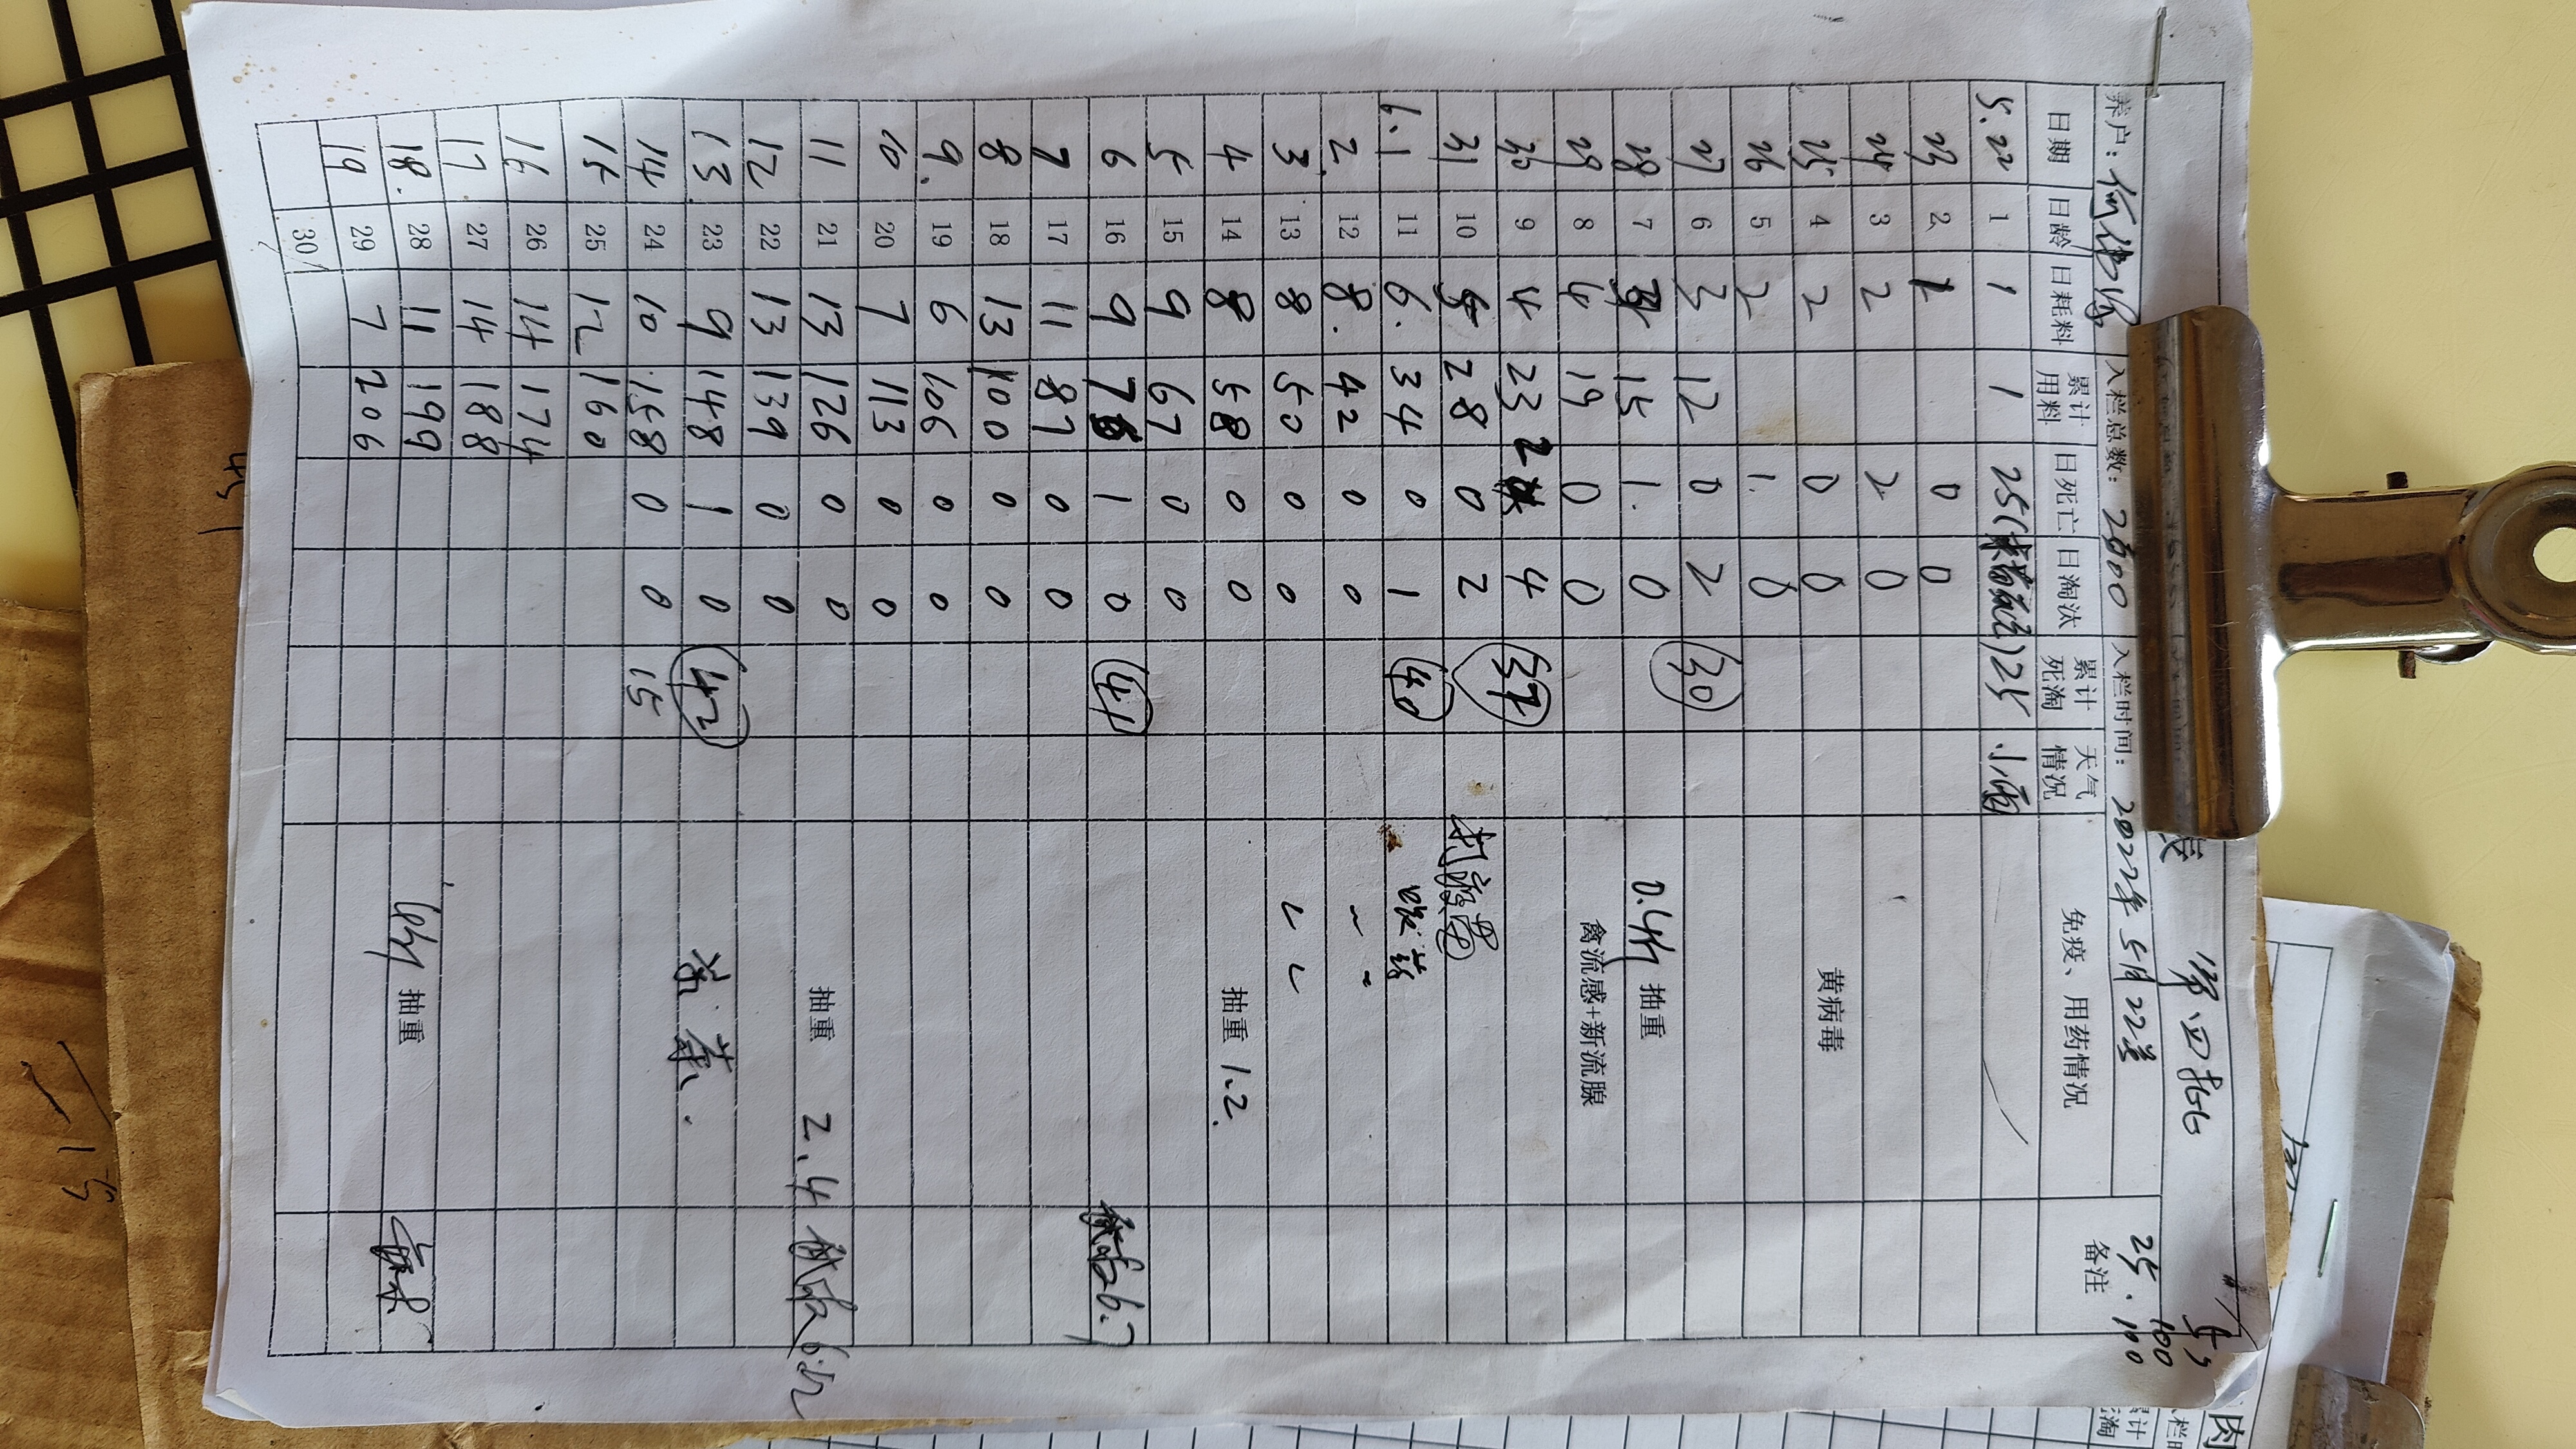 表 第四批
养户：何 入栏总数：2600 入栏时间：2022年5月22 25.100
100
日期 日龄 日耗料 累计用料 日死亡 日淘汰 累计死淘 天气情况 免疫、用药情况 备注
5.22 1 1 1 25 25 小雨
23 2 1 0 0
24 3 2 2 0
25 4 2 0 0 黄病毒
26 5 2 1. 0
27 6 3 12 0 2 30
28 7 3 15 1. 0 0.44 抽重
29 8 4 19 0 0 禽流感+新流腺
30 9 4 23 2 4 37
31 10 5 28 0 2
6.1 11 6. 34 0 1 40
2. 12 8. 42 0 0
3. 13 8 50 0 0
4 14 8 58 0 0 抽重 1.2.
5 15 9 67 0 0
6 16 9 76 1 0 41 6.7
7 17 11 87 0 0
8 18 13 100 0 0
9. 19 6 106 0 0
10 20 7 113 0 0
11 21 13 126 0 0 抽重 2.4
12 22 13 139 0 0
13 23 9 148 1 0 42
14 24 10 158 0 0 15
15 25 12 160
16 26 14 174
17 27 14 188
18. 28 11 199 抽重
19 29 7 206
30